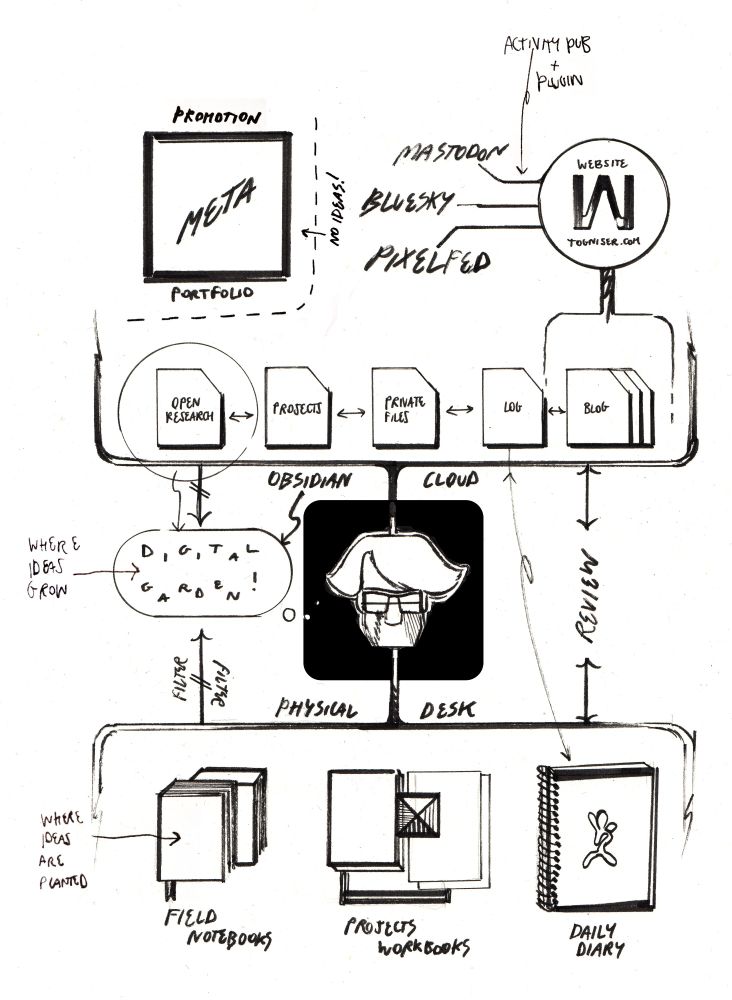 ACTIVITY PUB
+
PLUGIN
PROMOTION
META
PORTFOLIO
NO IDEAS!
MASTODON
BLUESKY
PIXELFED
WEBSITE
W
TOGNISER.COM
OPEN
RESEARCH
PROJECTS
PRIVATE
FILES
LOG
BLOG
OBSIDIAN
CLOUD
WHERE
IDEAS
GROW
DIGITAL
GARDEN!
REVIEW
FILTER
FILTER
PHYSICAL
DESK
WHERE
IDEAS
ARE
PLANTED
FIELD
NOTEBOOKS
PROJECTS
WORKBOOKS
DAILY
DIARY